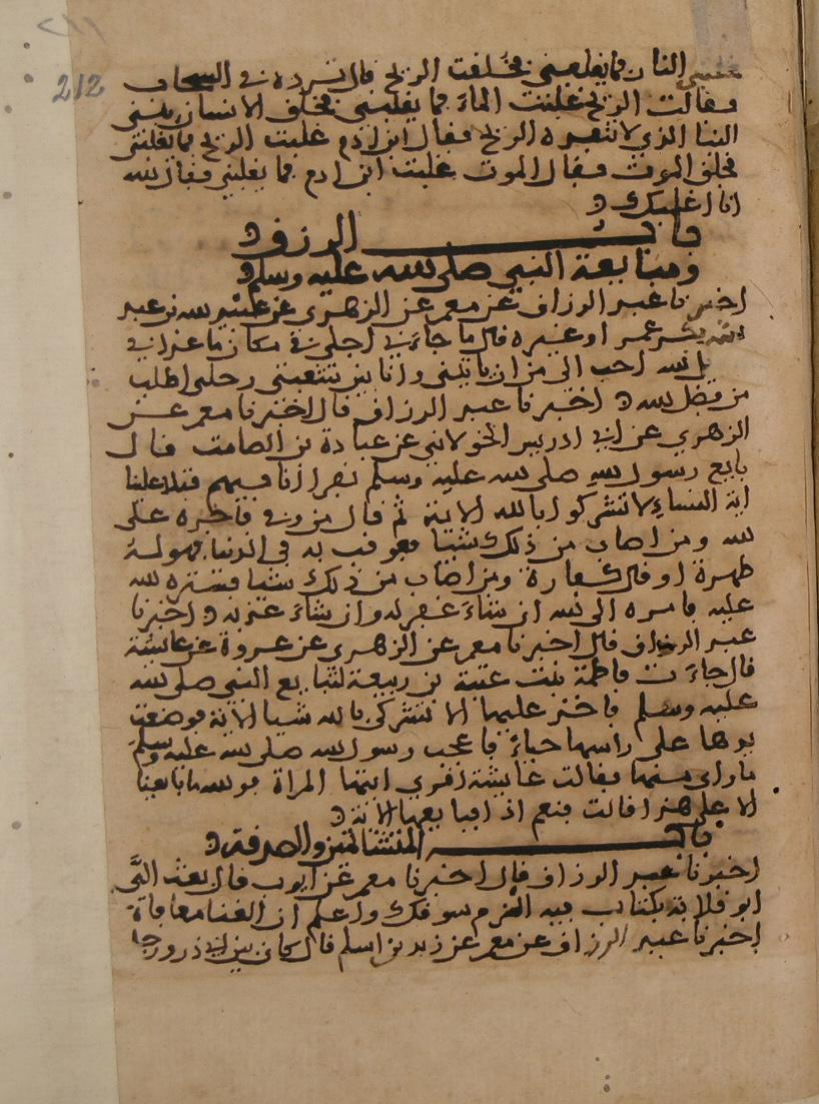 ٢١١
212
النار فما يغلبني فخلقت الريح قال تسرد في السحاب
وقالت الريح غلبت الماء فما يغلبني فخلق الانسان يبني
البنا الذي لا تنقره الريح فقال ابن ادم غلبت الريح فما يغلبني
فخلق الموت فقال الموت غلبت ابن ادم فما يغلبني فقال الله
انا اغلبك
باب الرزق
ومبايعة النبي صلى الله عليه وسلم
اخبرنا عبد الرزاق عن معمر عن الزهري عن عبيد الله بن عبد
الله عمر او غيره قال ما جاءني اجلي في مكان ما عدا في
الله احب الي من ان ياتيني وانا بين رحلي اطلب
من فضل الله اخبرنا عبد الرزاق قال اخبرنا معمر عن
الزهري عن ابي ادريس الخولاني عن عبادة بن الصامت قال
بايع رسول الله صلى الله عليه وسلم نفرا انا فيهم فتلا علينا
اية النساء لا تشركوا بالله الاية ثم قال من وفى فاجره على
الله ومن اصاب من ذلك شيا فعوقب به في الدنيا فهو له
طهرة او قال كفارة ومن اصاب من ذلك شيا فستره الله
عليه فامره الى الله ان شاء غفر له وان شاء عذبه اخبرنا
عبد الرزاق قال اخبرنا معمر عن الزهري عن عروة عن عايشة
قال جاءت فاطمة بنت عتبة بن ربيعة لتبايع النبي صلى الله
عليه وسلم فاخذ عليها الا تشركي بالله شيا الاية فوضعت
يدها على راسها حياء فاعجب رسول الله صلى الله عليه وسلم
ما راى منها فقالت عايشة اقري ايتها المراة فوالله ما بايعنا
الا على هذا فقالت فنعم اذا فبايعها الاية
باب
اخبرنا عبد الرزاق قال اخبرنا معمر عن ايوب قال بعث الي
ابو قلابة بكتاب فيه الزم سوقك واعلم ان الغنا معافاة
اخبرنا عبد الرزاق عن معمر عن زيد بن اسلم قال كان بين ابي ذر ورجل